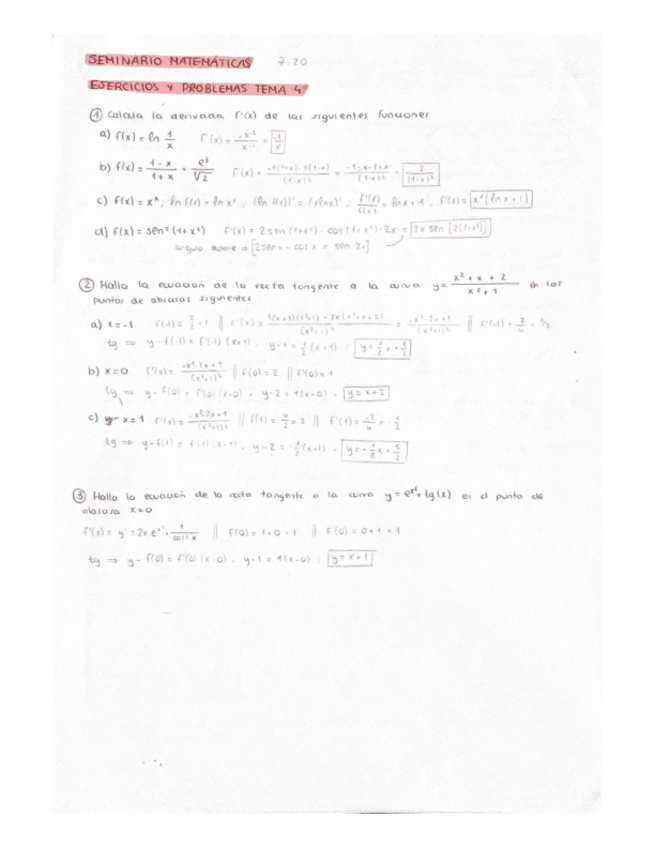 SEMINARIO MATEMÁTICAS 7.20
EJERCICIOS Y PROBLEMAS TEMA 4
① Calcula la derivada f'(x) de las siguientes funciones
a) f(x) = ln 1/x f'(x) = -x⁻²/x⁻¹ = -1/x
b) f(x) = 1-x/1+x + e³/√2 f'(x) = -1(1+x)-1(1-x)/(1+x)² = -1-x-1+x/(1+x)² = -2/(1+x)²
c) f(x) = xˣ, ln f(x) = ln xˣ, (ln f(x))' = (xlnx)', f'(x)/f(x) = lnx+1, f'(x) = xˣ(lnx+1)
d) f(x) = sen²(1+x²) f'(x) = 2sen(1+x²)·cos(1+x²)·2x = 2x sen[2(1+x²)]
angulo doble ⇒ [2senx·cosx = sen 2x]
② Halla la ecuación de la recta tangente a la curva y = x²+x+2/x²+1 en los
puntos de abscisas siguientes
a) x=-1 f(-1) = 2/2 = 1 || f'(x) = (2x+1)(x²+1)-2x(x²+x+2)/(x²+1)² = -x²-2x+1/(x²+1)² || f'(-1) = 2/4 = 1/2
tg ⇒ y-f(-1) = f'(-1)(x+1) y-1 = 1/2(x+1) y = 1/2x + 3/2
b) x=0 f'(x) = -x²-2x+1/(x²+1)² || f(0) = 2 || f'(0) = 1
tg ⇒ y-f(0) = f'(0)(x-0), y-2 = 1(x-0), y=x+2
c) x=1 f'(x) = -x²-2x+1/(x²+1)² || f(1) = 4/2 = 2 || f'(1) = -2/4 = -1/2
tg ⇒ y-f(1) = f'(1)(x-1), y-2 = -1/2(x-1), y = -1/2x + 5/2
③ Halla la ecuación de la recta tangente a la curva y = eˣ² + tg(x) en el punto de
abscisa x=0
f'(x) = y' = 2x eˣ² + 1/cos²x || f(0) = 1+0 = 1 || f'(0) = 0+1 = 1
tg ⇒ y-f(0) = f'(0)(x-0), y-1 = 1(x-0), y=x+1